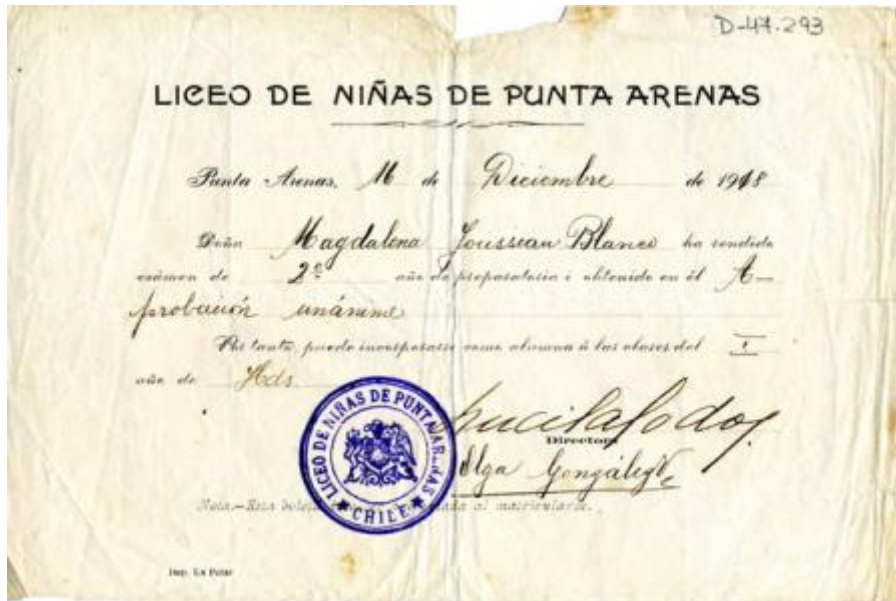 D-47.293
LICEO DE NIÑAS DE PUNTA ARENAS
Punta Arenas, 16 de Diciembre de 1918
Doña Magdalena Jousseau Blanco ha rendido
exámen de 2º año de preparatoria i obtenido en él A-
probación unánime
Por tanto, puede incorporarse como alumna á las clases del I
año de Hds.
Lucila Godoy
Directora
Olga González
LICEO DE NIÑAS DE PUNTA ARENAS
CHILE
Nota.—Esta al matricularse.
Imp. La Polar